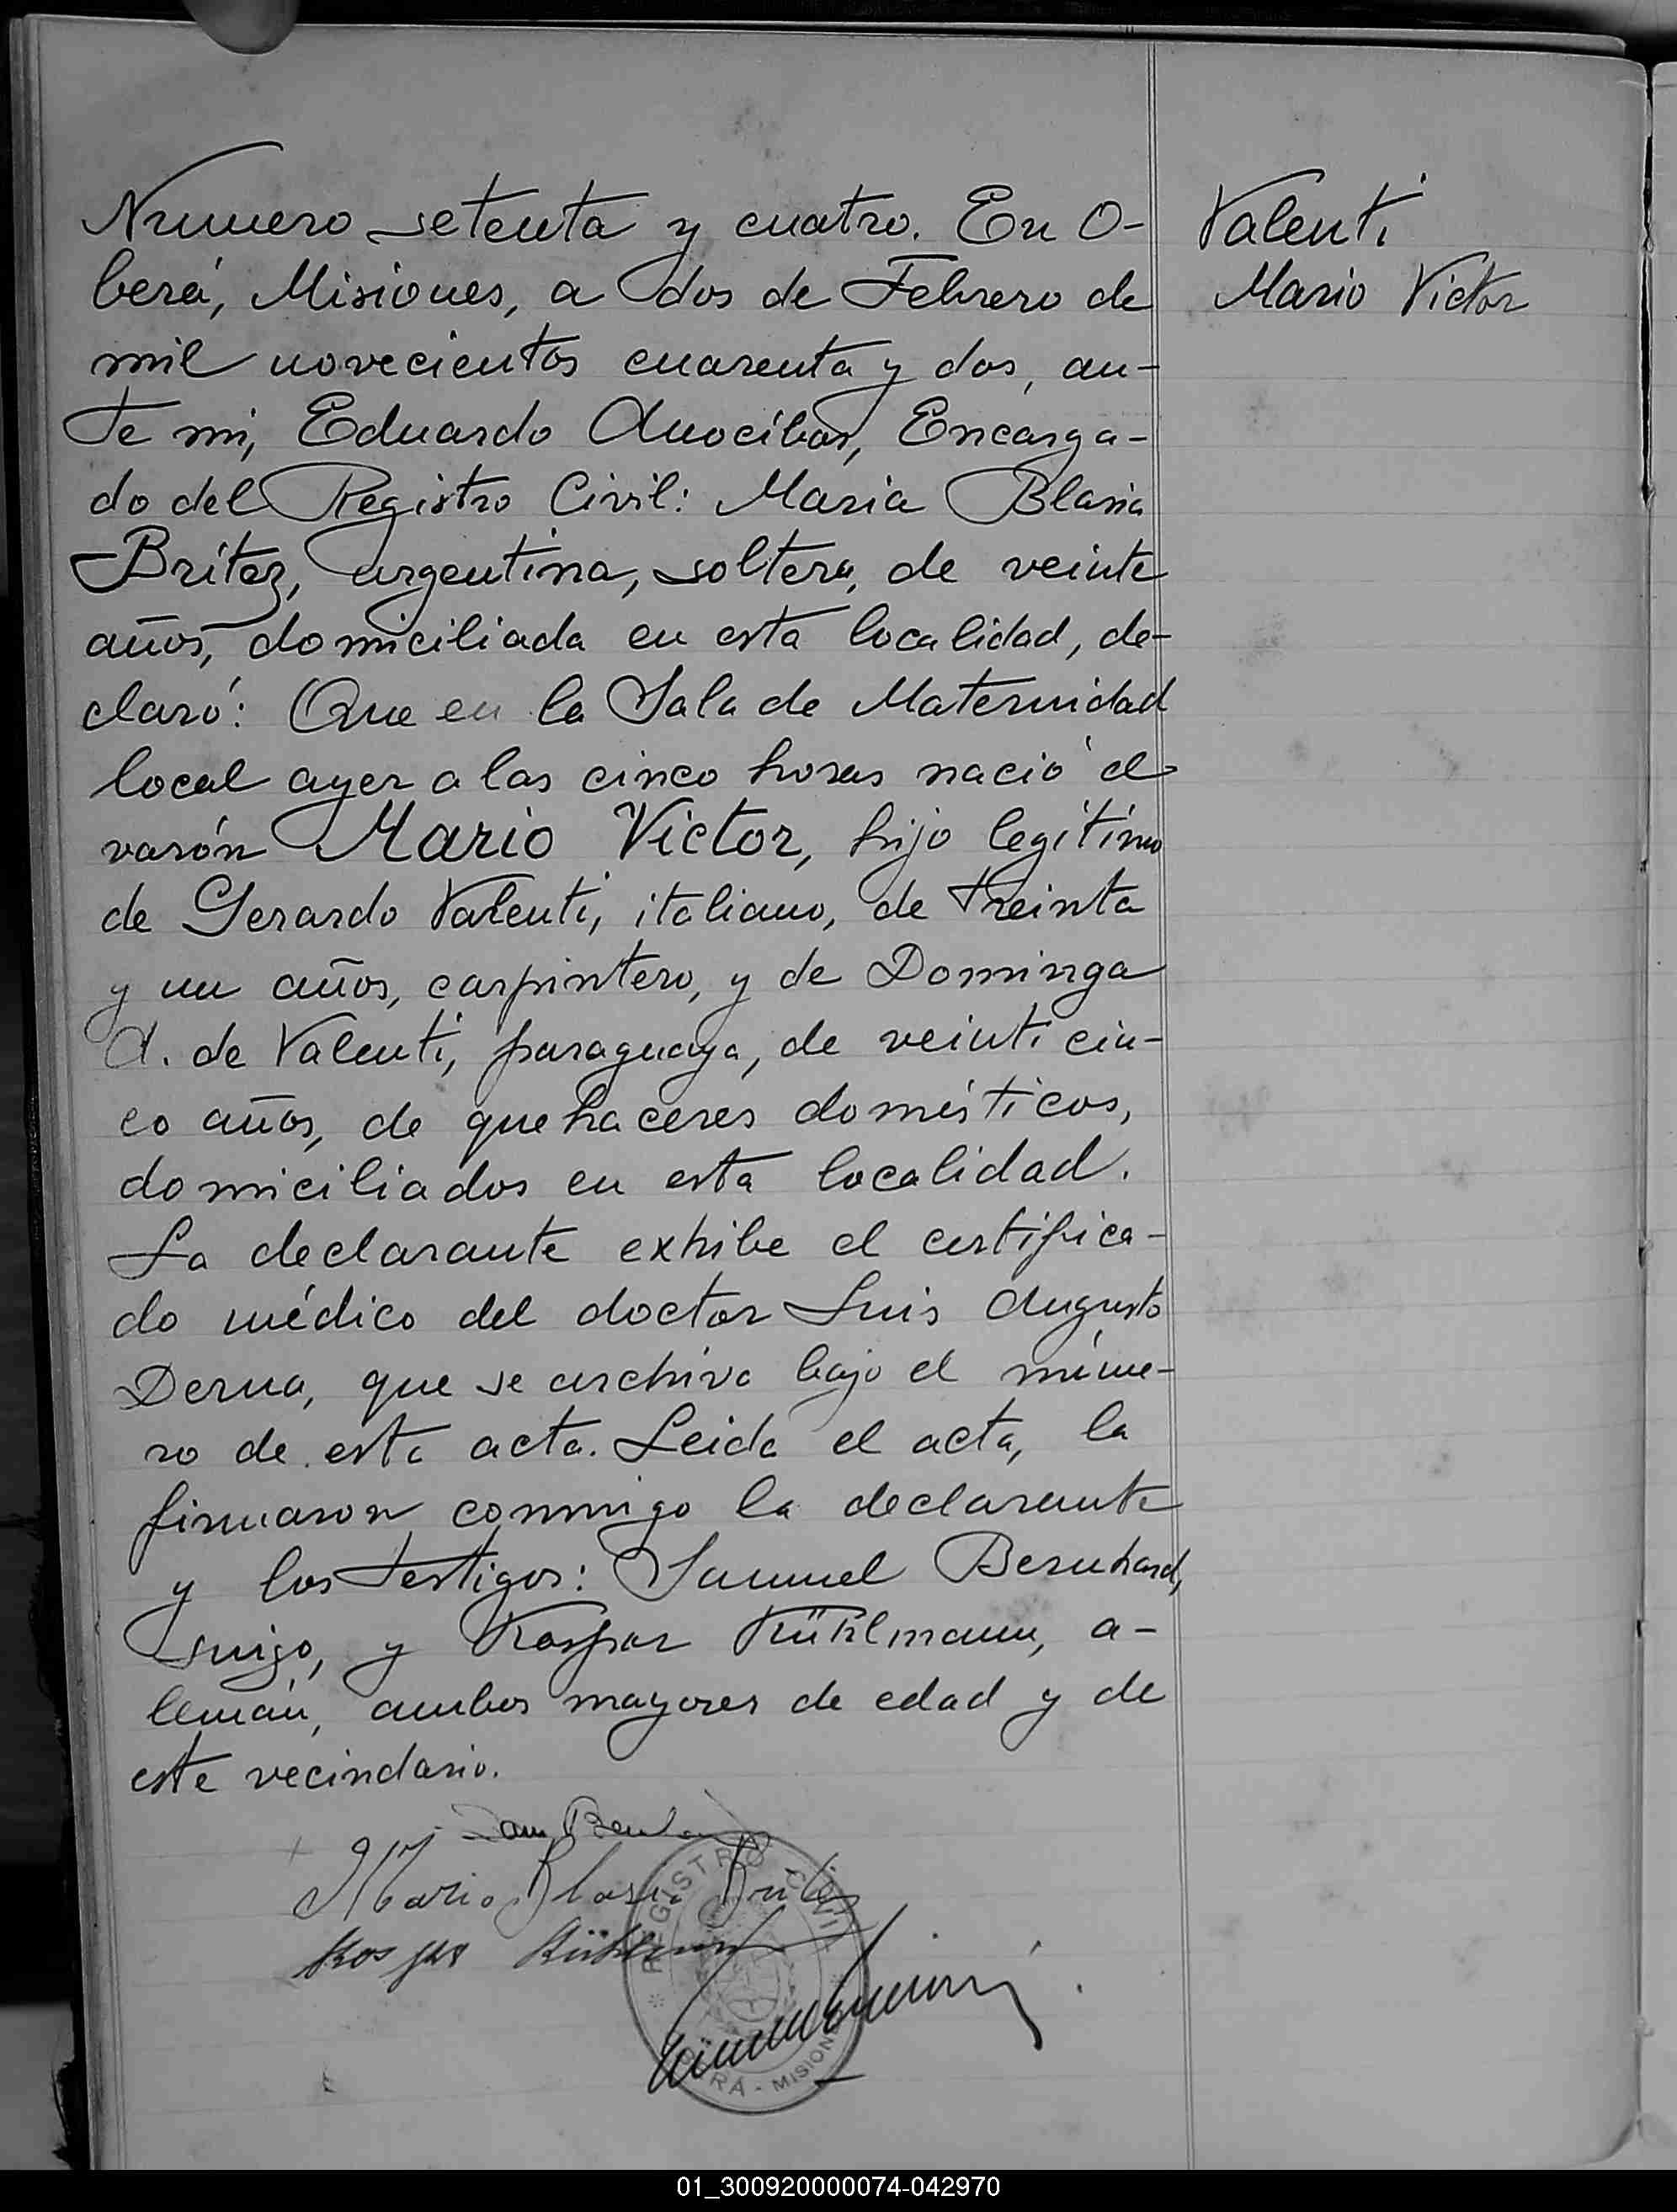 Numero setenta y cuatro. En O-
berá, Misiones, a dos de Febrero de
mil novecientos cuarenta y dos, an-
te mi, Eduardo Anocibar, Encarga-
do del Registro Civil: Maria Blasia
Britez, argentina, soltera, de veinte
años, domiciliada en esta localidad, de-
claró: Que en la Sala de Maternidad
local ayer a las cinco horas nació el
varón Mario Victor, hijo legítimo
de Gerardo Valenti, italiano, de treinta
y un años, carpintero, y de Dominga
A. de Valenti, paraguaya, de veinticin-
co años, de quehaceres domésticos,
domiciliados en esta localidad.
La declarante exhibe el certifica-
do médico del doctor Luis Augusto
Derna, que se archiva bajo el núme-
ro de esta acta. Leida el acta, la
firmaron conmigo la declarante
y los testigos: Samuel Bernhard,
suizo, y Kaspar Kühlmann, a-
lemán, ambos mayores de edad y de
este vecindario.
Valenti
Mario Victor
Maria Blasia Britez
REGISTRO CIVIL
MISIONES
01_300920000074-042970